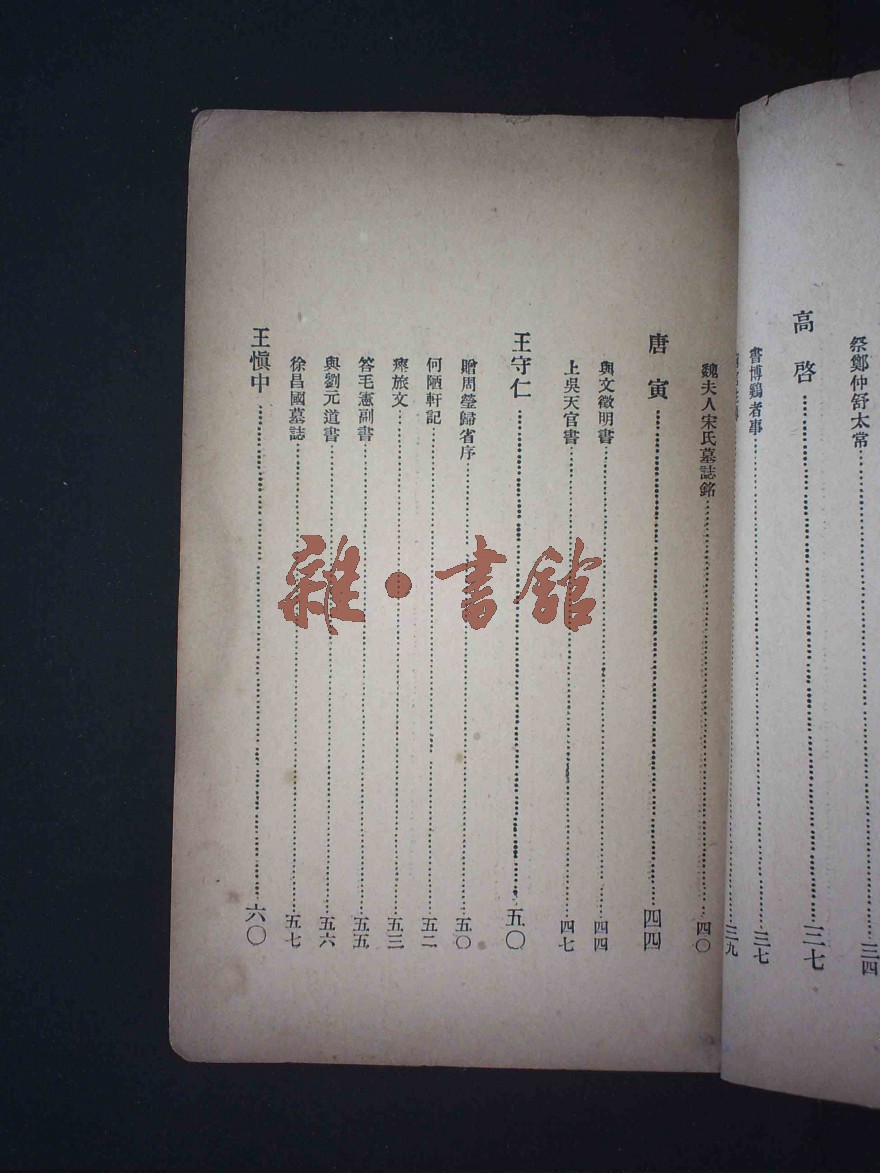 祭鄭仲舒太常……三四
高啓……三七
書博鷄者事……三七
三九
魏夫人宋氏墓誌銘……四〇
唐寅……四四
與文徵明書……四四
上吳天官書……四七
王守仁……五〇
贈周瑩歸省序……五〇
何陋軒記……五二
瘞旅文……五三
答毛憲副書……五五
與劉元道書……五六
徐昌國墓誌……五七
王愼中……六〇
雜·書館